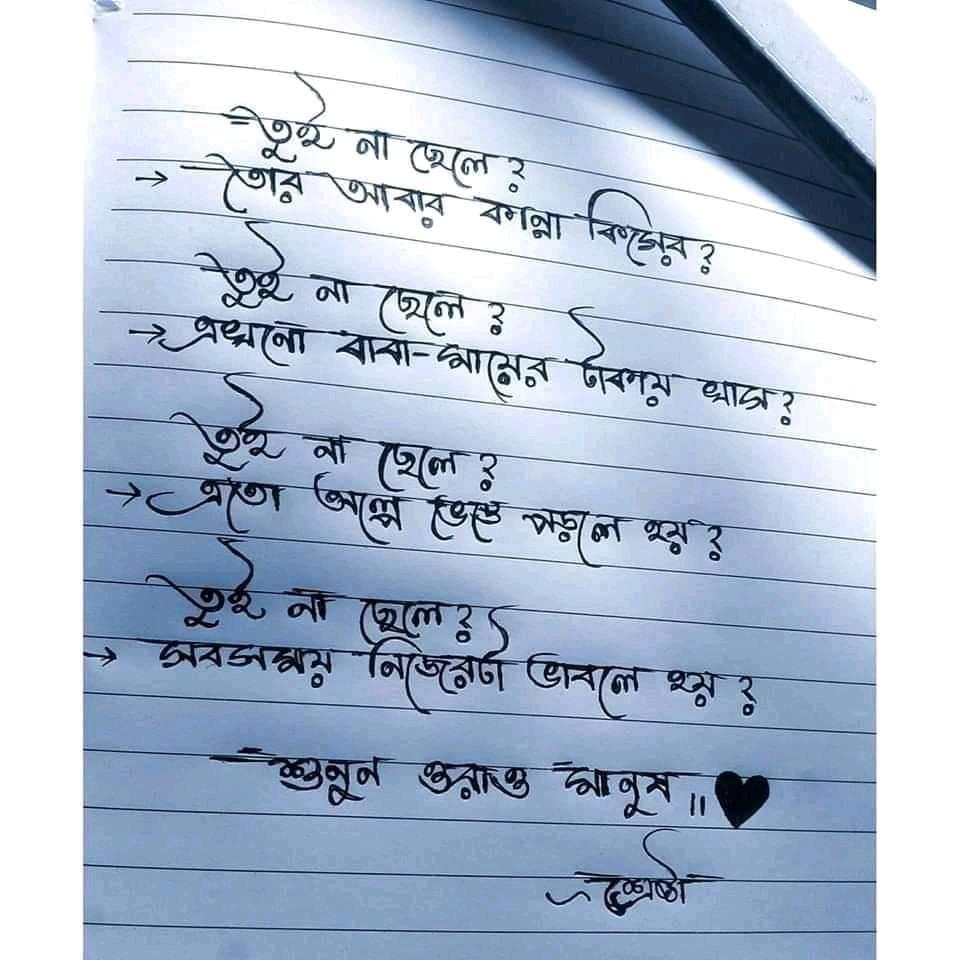 তুই না ছেলে?
→ তোর আবার কান্না কিসের?
তুই না ছেলে?
→ এখনো বাবা-মায়ের টাকায় খাস?
তুই না ছেলে?
→ এতো অল্পে ভেঙে পড়লে হয়?
তুই না ছেলে?
→ সবসময় নিজেরটা ভাবলে হয়?
শুনুন ওরাও মানুষ॥♥
~শ্রেষ্ঠা